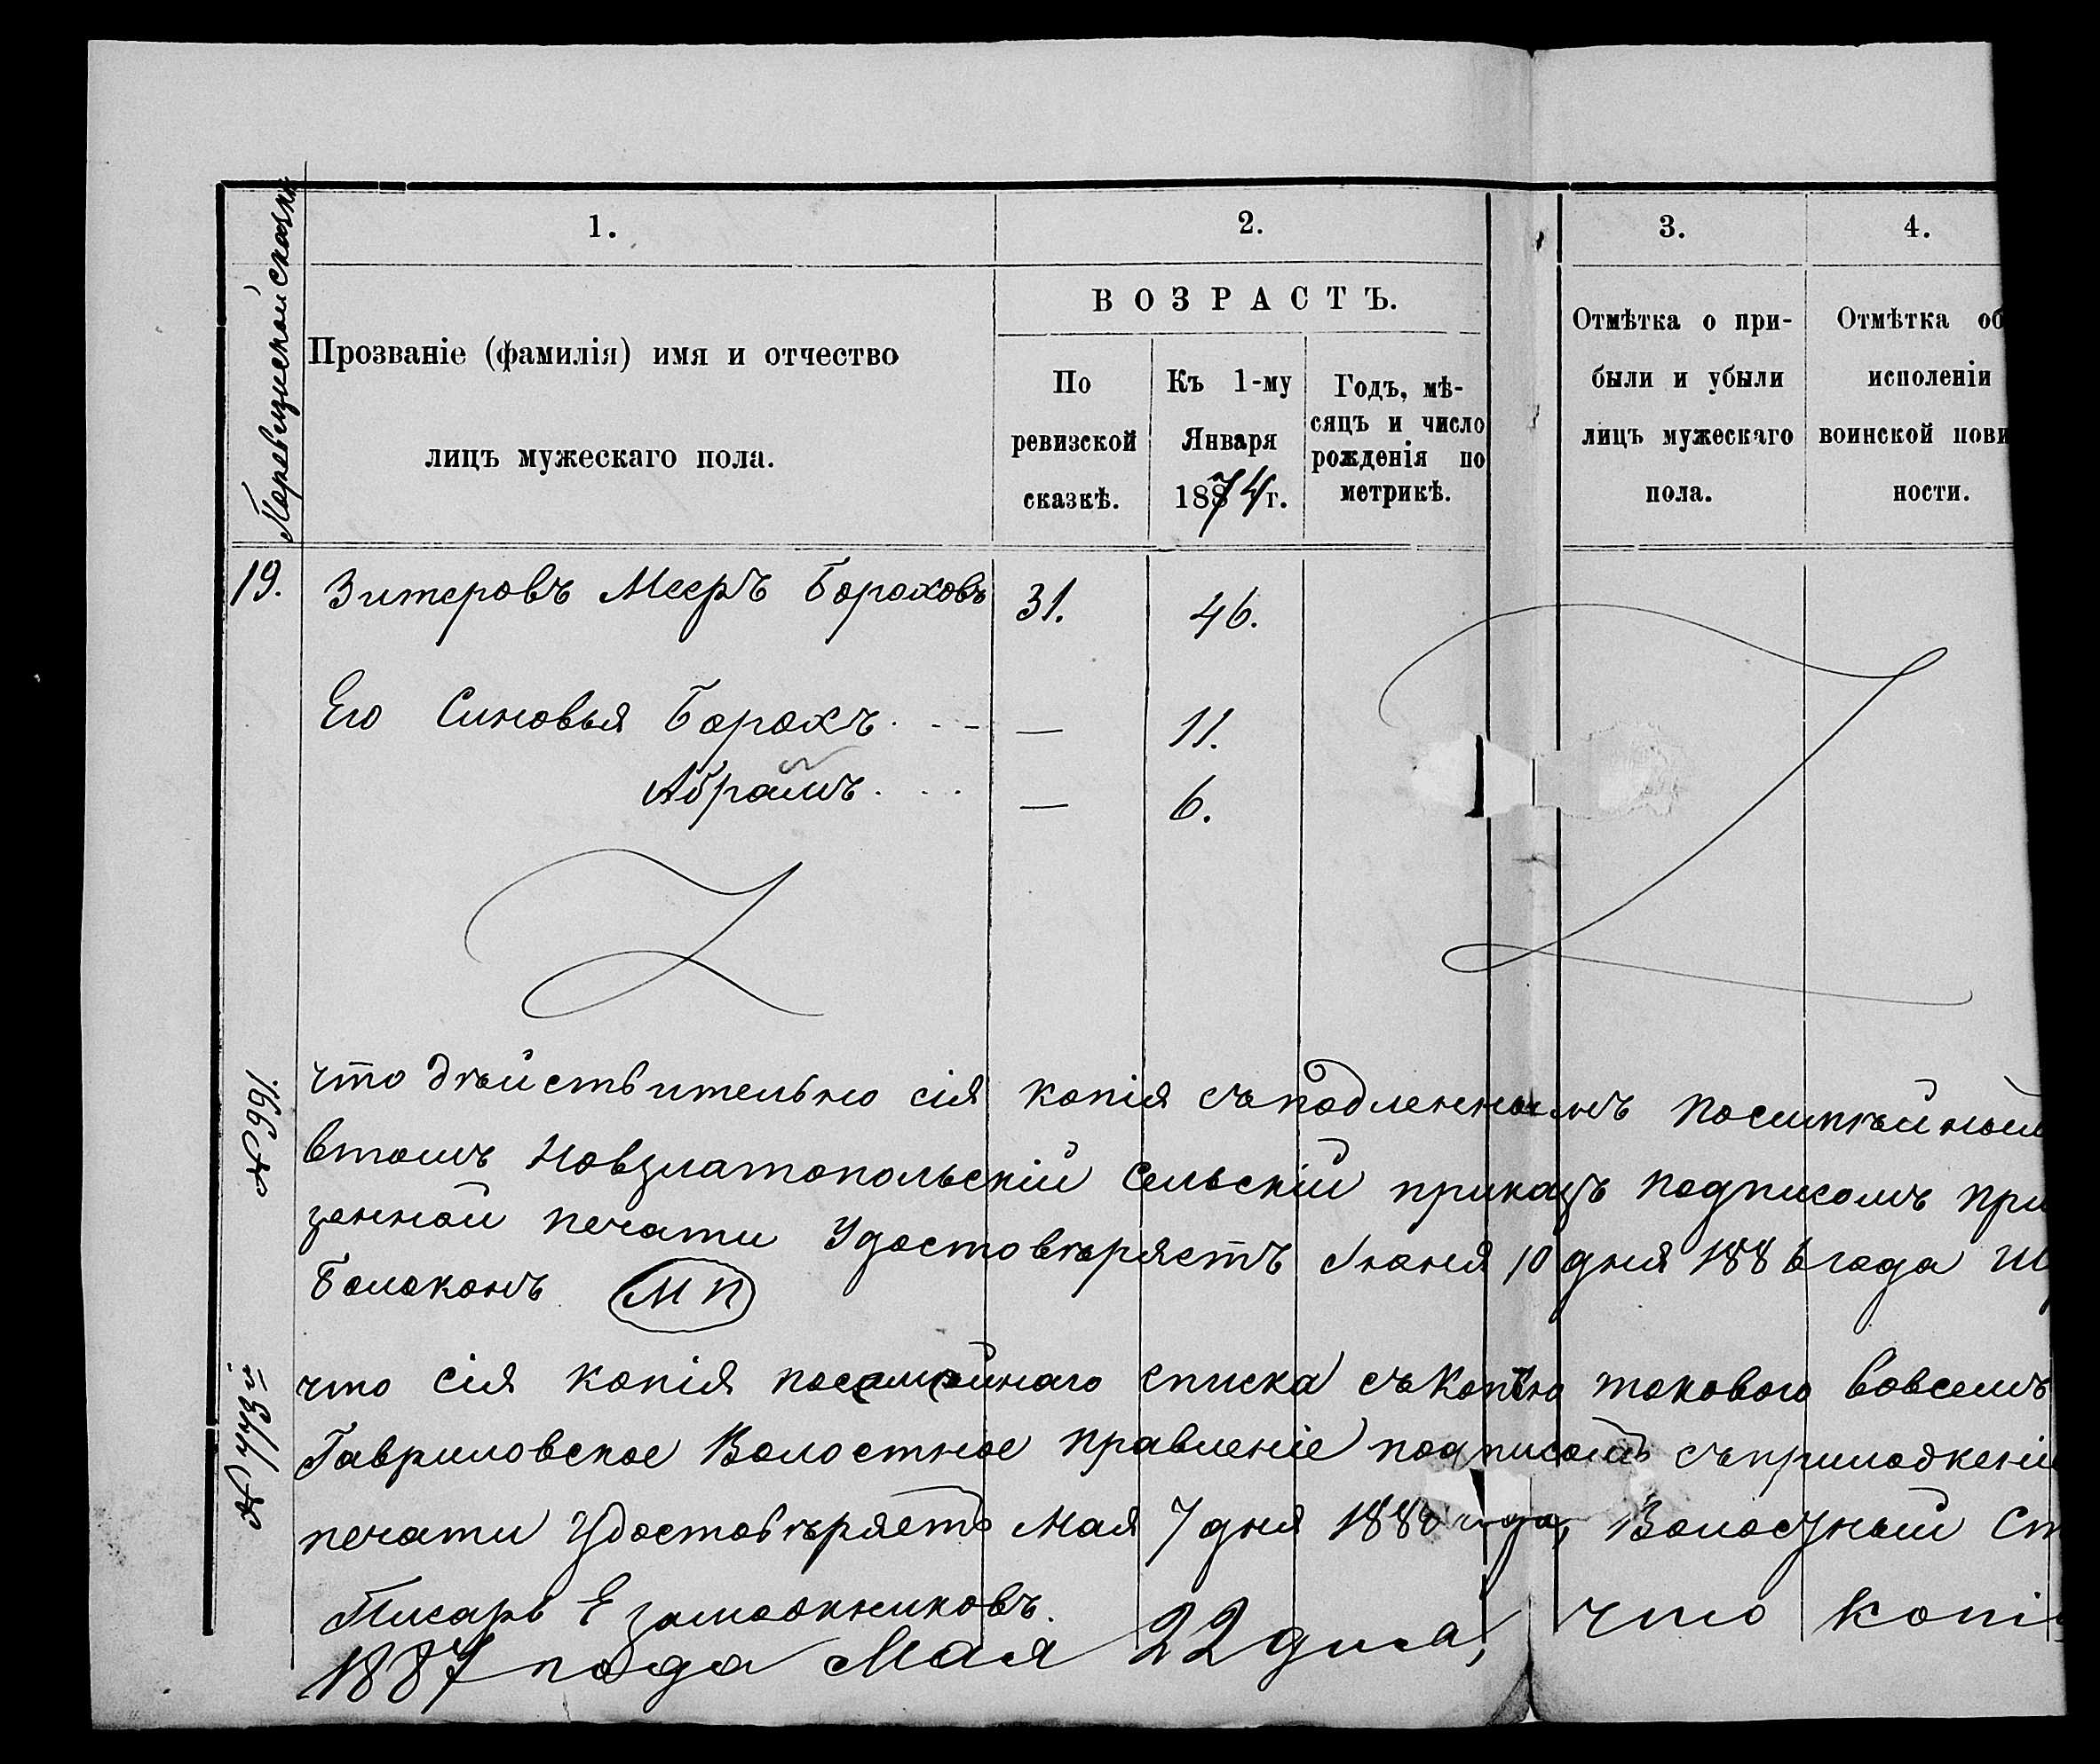 По ревизской сказки
1. 2. 3. 4.
ВОЗРАСТЪ.
Прозваніе (фамилія) имя и отчество
лицъ мужескаго пола.
По
ревизской
сказкѣ.
Къ 1-му
Января
1874 г.
Годъ, мѣ-
сяцъ и число
рожденія по
метрикѣ.
Отмѣтка о при-
были и убыли
лицъ мужескаго
пола.
Отмѣтка об
исполеніи
воинской пови
ности.
19. Зитеровъ Меерѣ Бороховъ 31. 46.
Его Синовья Борохъ. -- — 11.
Абрамъ. . . — 6.
№ 991.
что дѣйствительно сія копія съ подленнымъ посимѣйным
втомъ Новзлатопольскій Сельскій приказъ подписомъ при
зенной печати Удостовѣряетъ Июня 10 дня 1886 года Ш
Болоконъ МП
№ 773й
что сія копія посемейнаго списка съ копѣю токового вовсемъ
Гавриловское Волостное правленіе подписомъ съприложені
печати Удостовѣряетъ Мая 7 дня 188 года, Волосный Ст
Писарь Е Заложниковъ.
1887 года Мая 22 дня, что копі